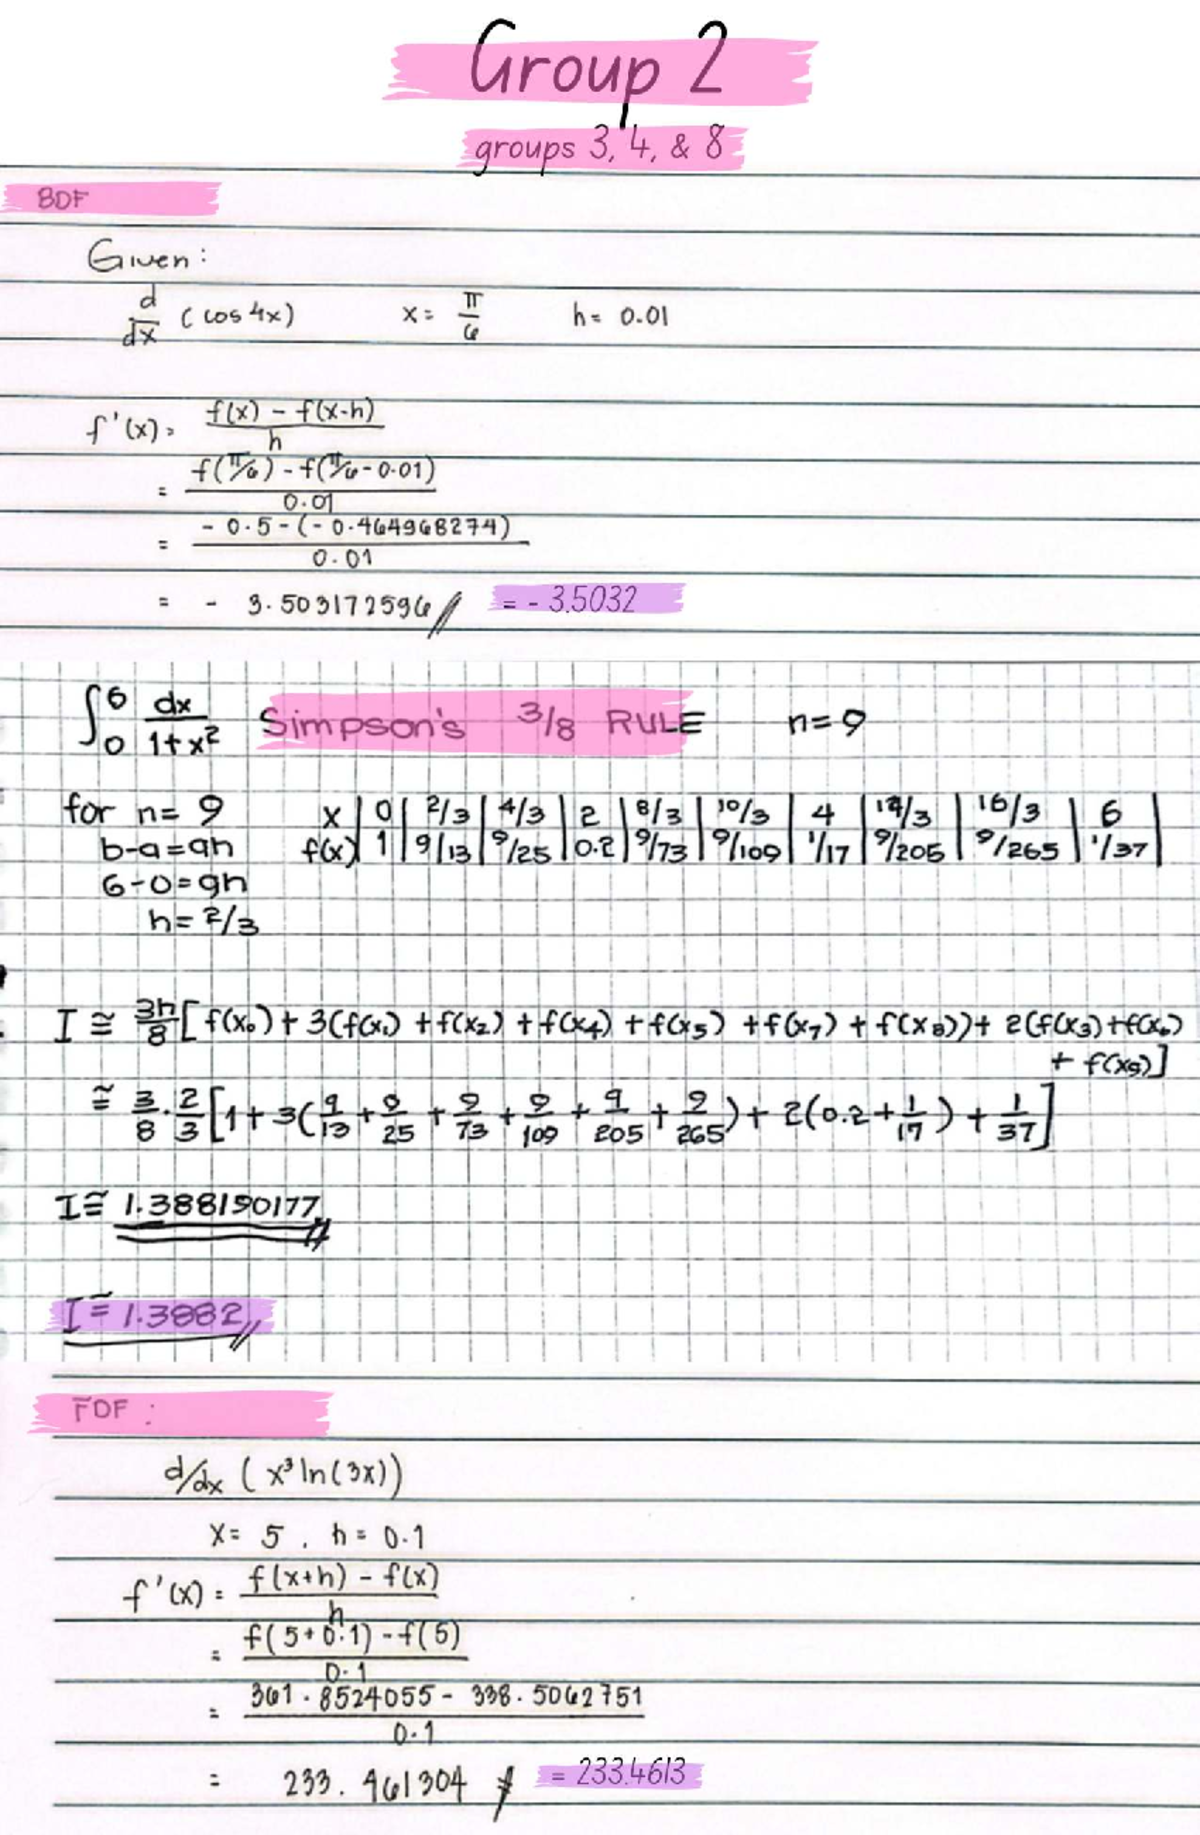 Group 2
groups 3, 4, & 8
BDF
Given:
d/dx (cos 4x)    x = π/6    h = 0.01
f'(x) = f(x) - f(x-h) / h
= f(π/6) - f(π/6 - 0.01) / 0.01
= -0.5 - (-0.464968274) / 0.01
= - 3.503172596 // = - 3.5032
∫₀⁶ dx / 1+x² Simpson's 3/8 RULE n=9
for n= 9    x | 0 | 2/3 | 4/3 | 2 | 8/3 | 10/3 | 4 | 14/3 | 16/3 | 6 |
b-a=9h    f(x) | 1 | 9/13 | 9/25 | 0.2 | 9/73 | 9/109 | 1/17 | 9/205 | 9/265 | 1/37 |
6-0=9h
h= 2/3
I ≅ 3h/8 [ f(x₀) + 3(f(x₁) + f(x₂) + f(x₄) + f(x₅) + f(x₇) + f(x₈)) + 2(f(x₃) + f(x₆)
+ f(x₉)]
≅ 3/8 · 2/3 [1 + 3(9/13 + 9/25 + 9/73 + 9/109 + 9/205 + 9/265) + 2(0.2 + 1/17) + 1/37]
I ≅ 1.388190177 //
I ≅ 1.3882 //
FDF :
d/dx ( x³ ln(3x))
x = 5 , h = 0.1
f'(x) = f(x+h) - f(x) / h
= f(5+0.1) - f(5) / 0.1
= 361.8524055 - 338.5062751 / 0.1
= 233.461304 // = 233.4613